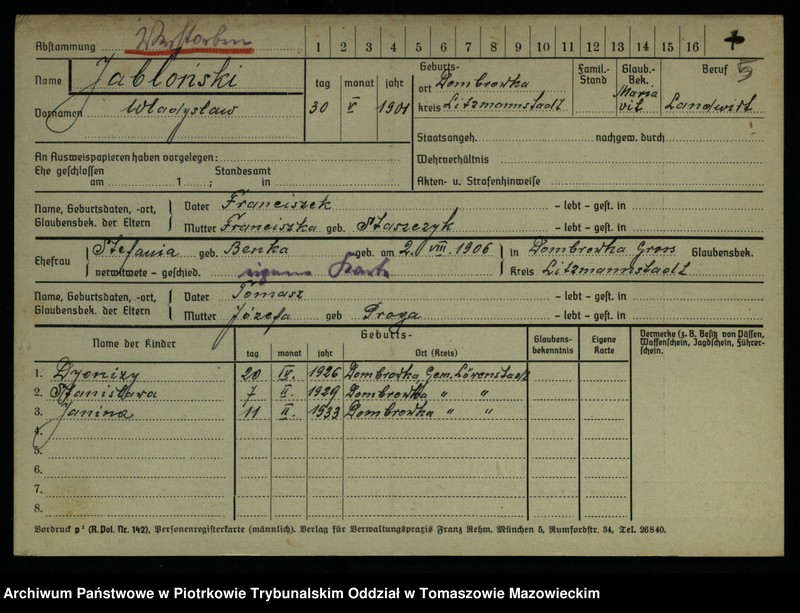 Abstammung Verstorben 1 2 3 4 5 6 7 8 9 10 11 12 13 14 15 16 +
Name Jabłoński
Vornamen Władysław
tag monat jahr
30 V 1901
Geburts-
ort Dombrowka
kreis Litzmannstadt
Famil.-
Stand
Glaub.-
Bek.
Maria
vit
Beruf 5
Landwirt
Staatsangeh. nachgew. durch
Wehrverhältnis
Akten- u. Strafenhinweise
An Ausweispapieren haben vorgelegen:
Ehe geschlossen Standesamt
am 1 ; in
Name, Geburtsdaten, -ort,
Glaubensbek. der Eltern
Vater Franciszek – lebt – gest. in
Mutter Franciszka geb. Staszczyk – lebt – gest. in
Ehefrau
Stefania geb. Benka geb. am 2. VIII. 1906 in Dombrowka Gross Glaubensbek.
verwitwete – geschied. eigene Karte Kreis Litzmannstadt
Name, Geburtsdaten, -ort,
Glaubensbek. der Eltern
Vater Tomasz – lebt – gest. in
Mutter Józefa geb Proga – lebt – gest. in
Name der Kinder
Geburts-
tag monat jahr Ort (Kreis)
Glaubens-
bekenntnis
Eigene
Karte
Vermerke (z. B. Besitz von Pässen,
Waffenschein, Jagdschein, Führer-
schein.
1. Dyonizy 20 IV. 1926 Dombrowka Gem. Lörenstadt
2. Stanisława 7 II. 1929 Dombrowka " "
3. Janina 11 II. 1933 Dombrowka " "
4.
5.
6.
7.
8.
Vordruck p¹ (R. Pol. Nr. 142), Personenregisterkarte (männlich). Verlag für Verwaltungspraxis Franz Rehm, München 5, Rumfordstr. 34, Tel. 26840.
Archiwum Państwowe w Piotrkowie Trybunalskim Oddział w Tomaszowie Mazowieckim